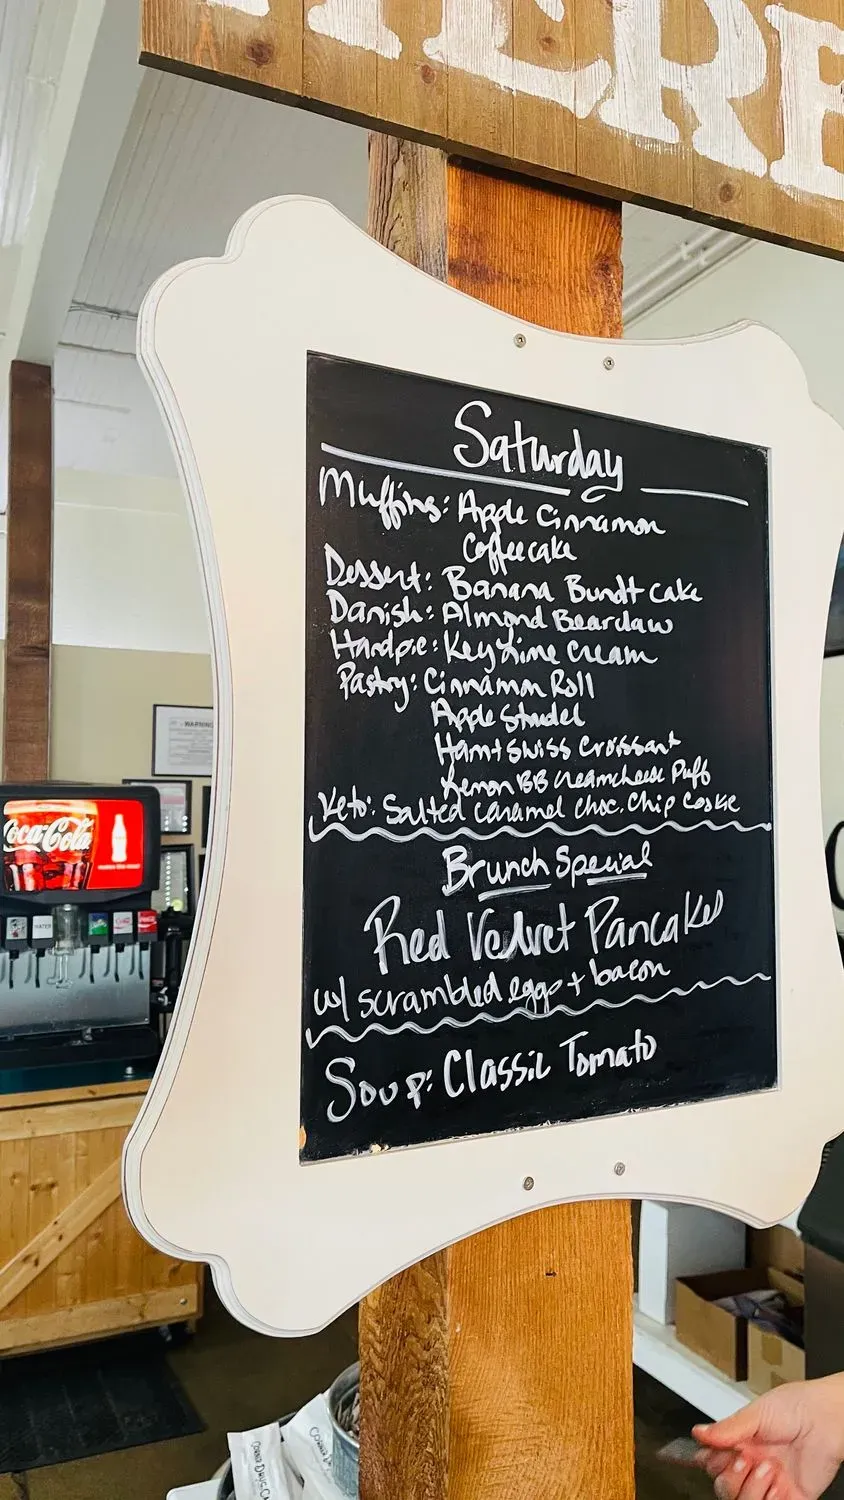 ERE
Saturday
Muffins: Apple Cinnamon
Coffeecake
Dessert: Banana Bundt cake
Danish: Almond Bearclaw
Handpie: Key Lime Cream
Pastry: Cinnamon Roll
Apple Strudel
Ham + Swiss Croissant
Lemon BB Creamcheese Puff
Keto: Salted Caramel Choc. Chip Cookie
Brunch Special
Red Velvet Pancakes
w/ scrambled eggs + bacon
Soup: Classic Tomato
WARNING
Coca-Cola
WATER